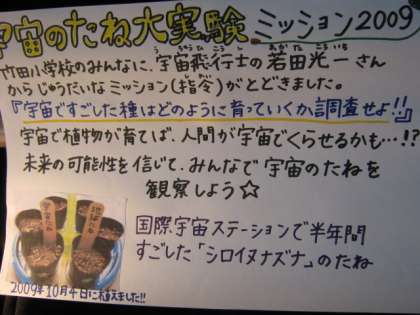 宇宙のたね大実験 ミッション2009
内田小学校のみんなに、宇宙飛行士の若田光一さん
からじゅうだいなミッション(指令)がとどきました。
『宇宙ですごした種はどのように育っていくか調査せよ!!』
宇宙で植物が育てば、人間が宇宙でくらせるかも…!?
未来の可能性を信じて、みんなで宇宙のたねを
観察しよう☆
国際宇宙ステーションで半年間
すごした「シロイヌナズナ」のたね
宇宙たね
地球たね
2009年10月4日に植えました!!